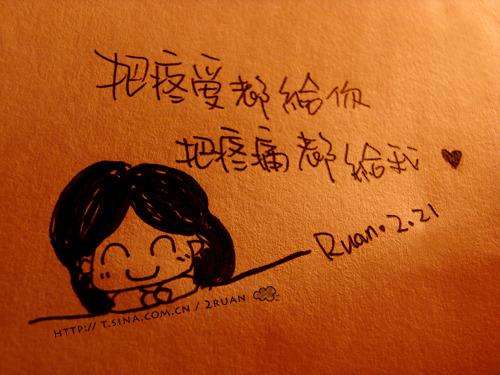 把疼爱都給你
把疼痛都給我
Ruan.2.21
HTTP://T.SINA.COM.CN/2RUAN